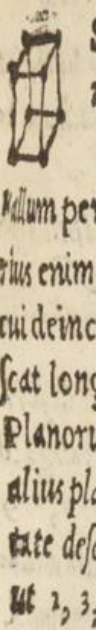 Nullum per
rius enim
cui deinc
ſcat long
Planoru
alius pla
tate deſc
ut 2, 3,